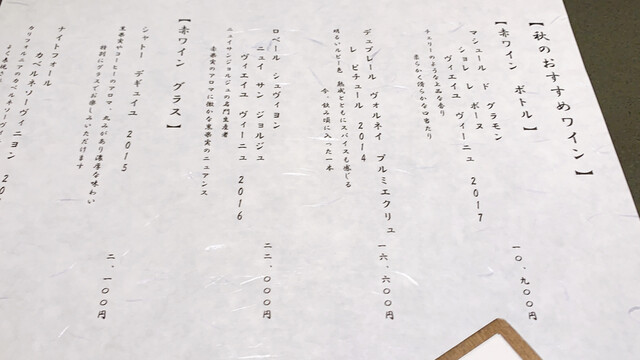 【秋のおすすめワイン】
【赤ワイン ボトル】
マシュール ド グラモン
ショレ レ ボーヌ
ヴィエイユ ヴィーニュ 2017
チェリーのような上品な香り
柔らかく滑らかな口当たり
一〇、九〇〇円
デュブレール ヴォルネイ プルミエクリュ
レ ピチュール 2014
明るいルビー色 熟成とともにスパイスも感じる
今、飲み頃に入った一本
一六、六〇〇円
ロベール シュヴィヨン
ニュイ サン ジョルジュ
ヴィエイユ ヴィーニュ 2016
ニュイサンジョルジュの名門生産者
赤果実のアロマに微かな黒果実のニュアンス
二二、〇〇〇円
【赤ワイン グラス】
シャトー デギュイユ 2015
黒果実やコーヒーのアロマ、丸みがあり濃厚な味わい
特別にグラスでお楽しみいただけます
二、一〇〇円
ナイトフォール
カベルネソーヴィニヨン 20
カリフォルニアのカベルネソーヴィ
よく表現さ